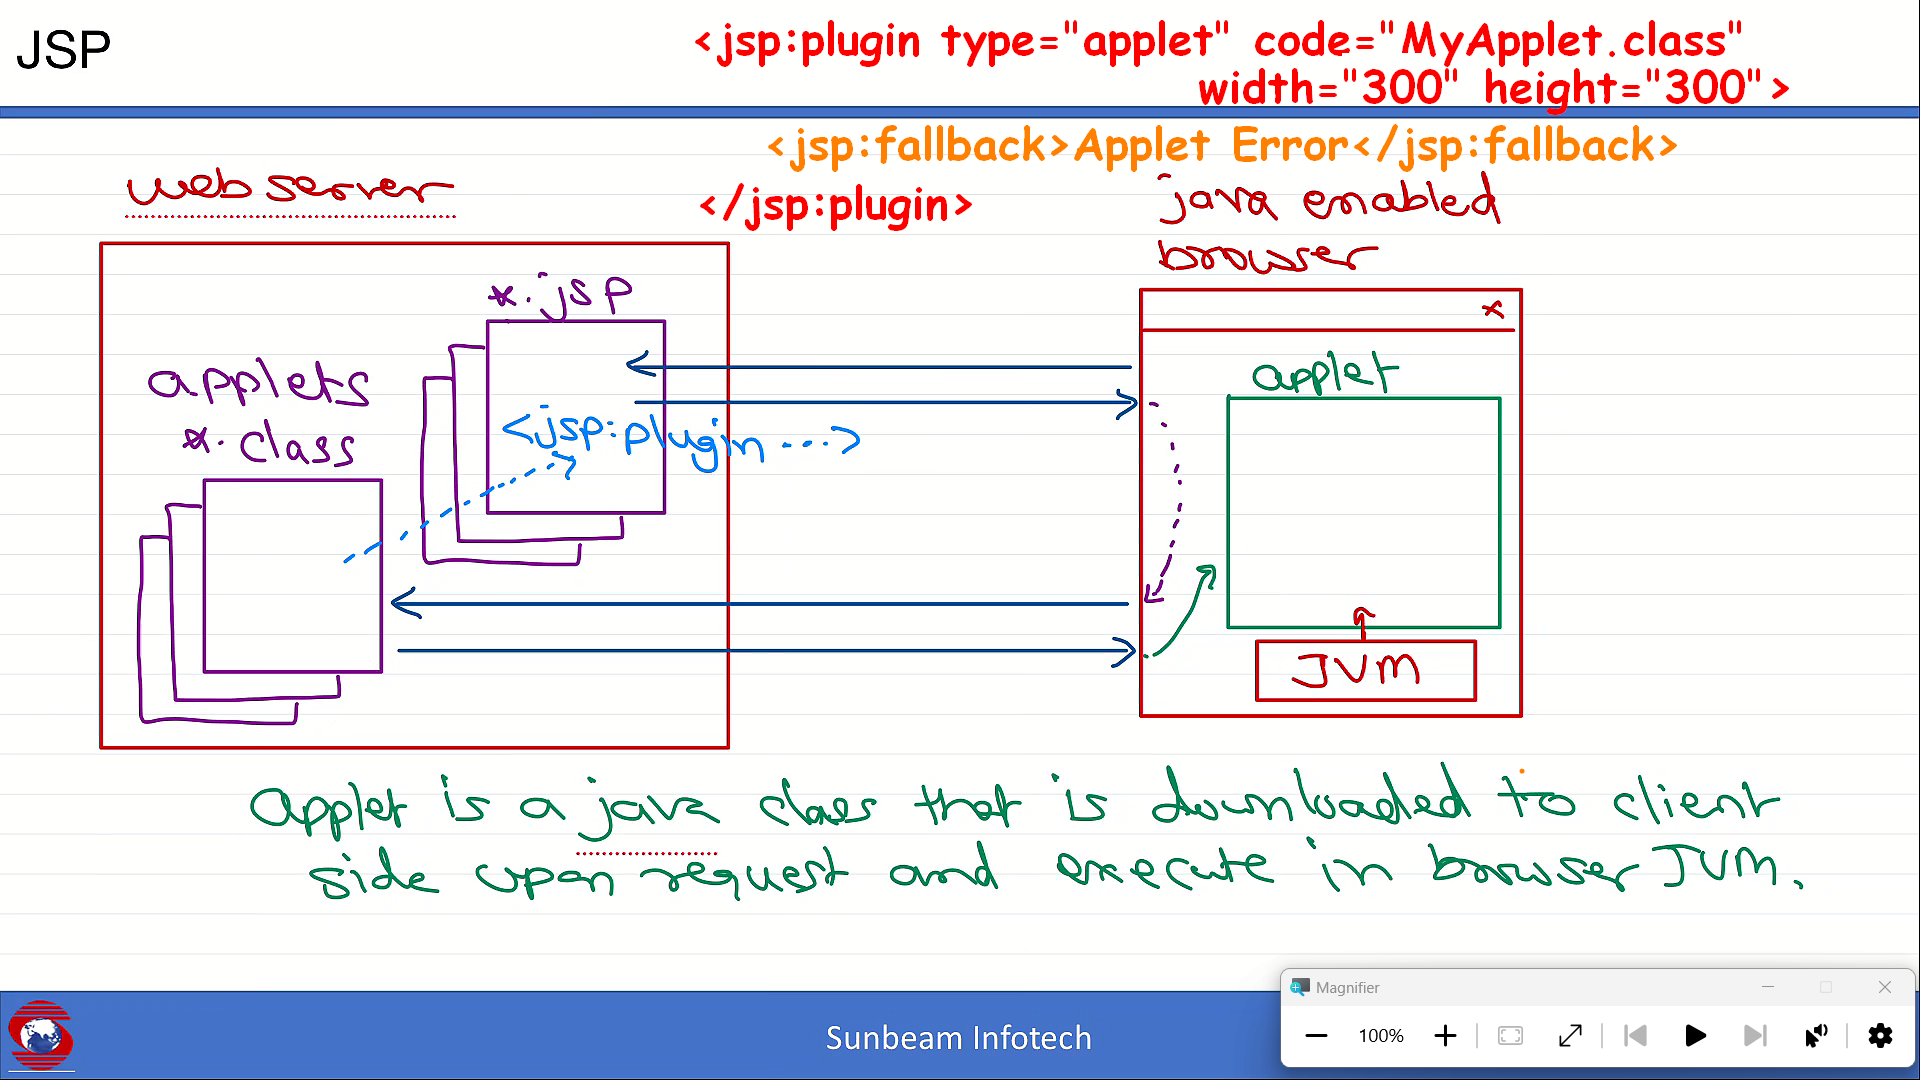 JSP
<jsp:plugin type="applet" code="MyApplet.class"
width="300" height="300">
<jsp:fallback>Applet Error</jsp:fallback>
</jsp:plugin>
web server
java enabled
browser
*.jsp
x
applets
*.class
applet
<jsp:plugin ...>
JVM
applet is a java class that is downloaded to client
side upon request and execute in browser JVM.
Sunbeam Infotech
Magnifier
100%